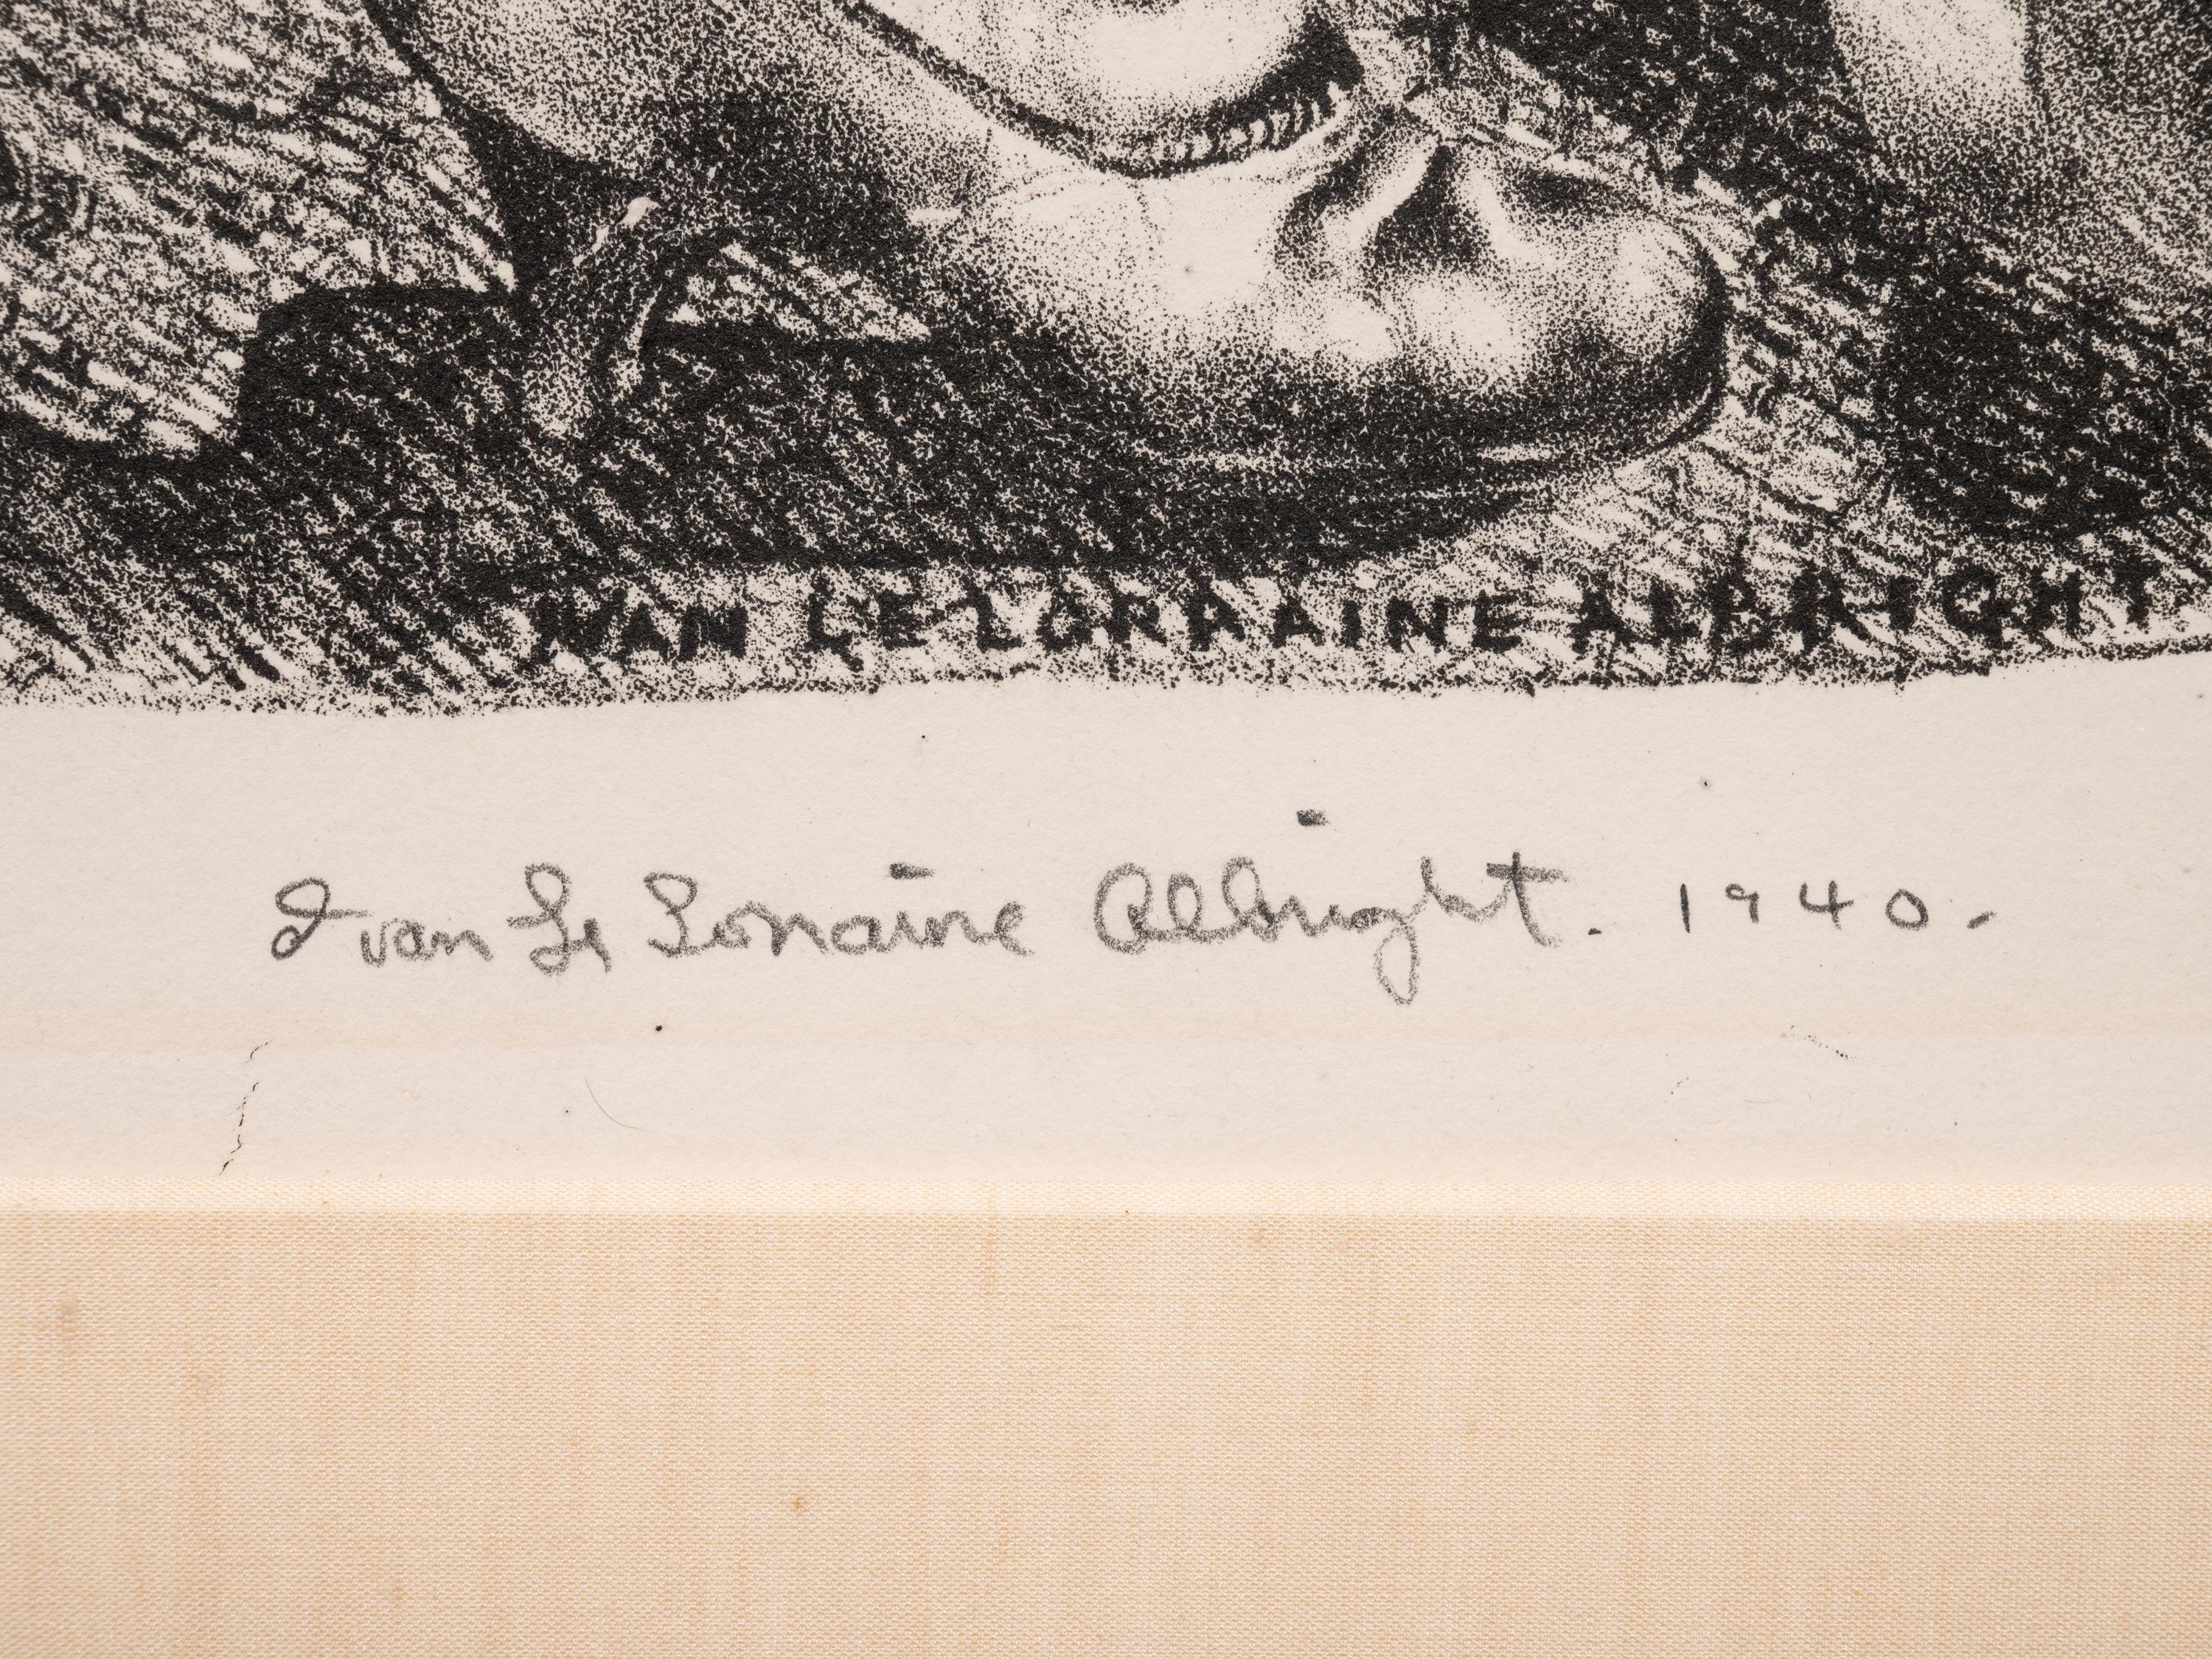 IVAN LE LORRAINE ALBRIGHT
Ivan Le Lorraine Albright. 1940.